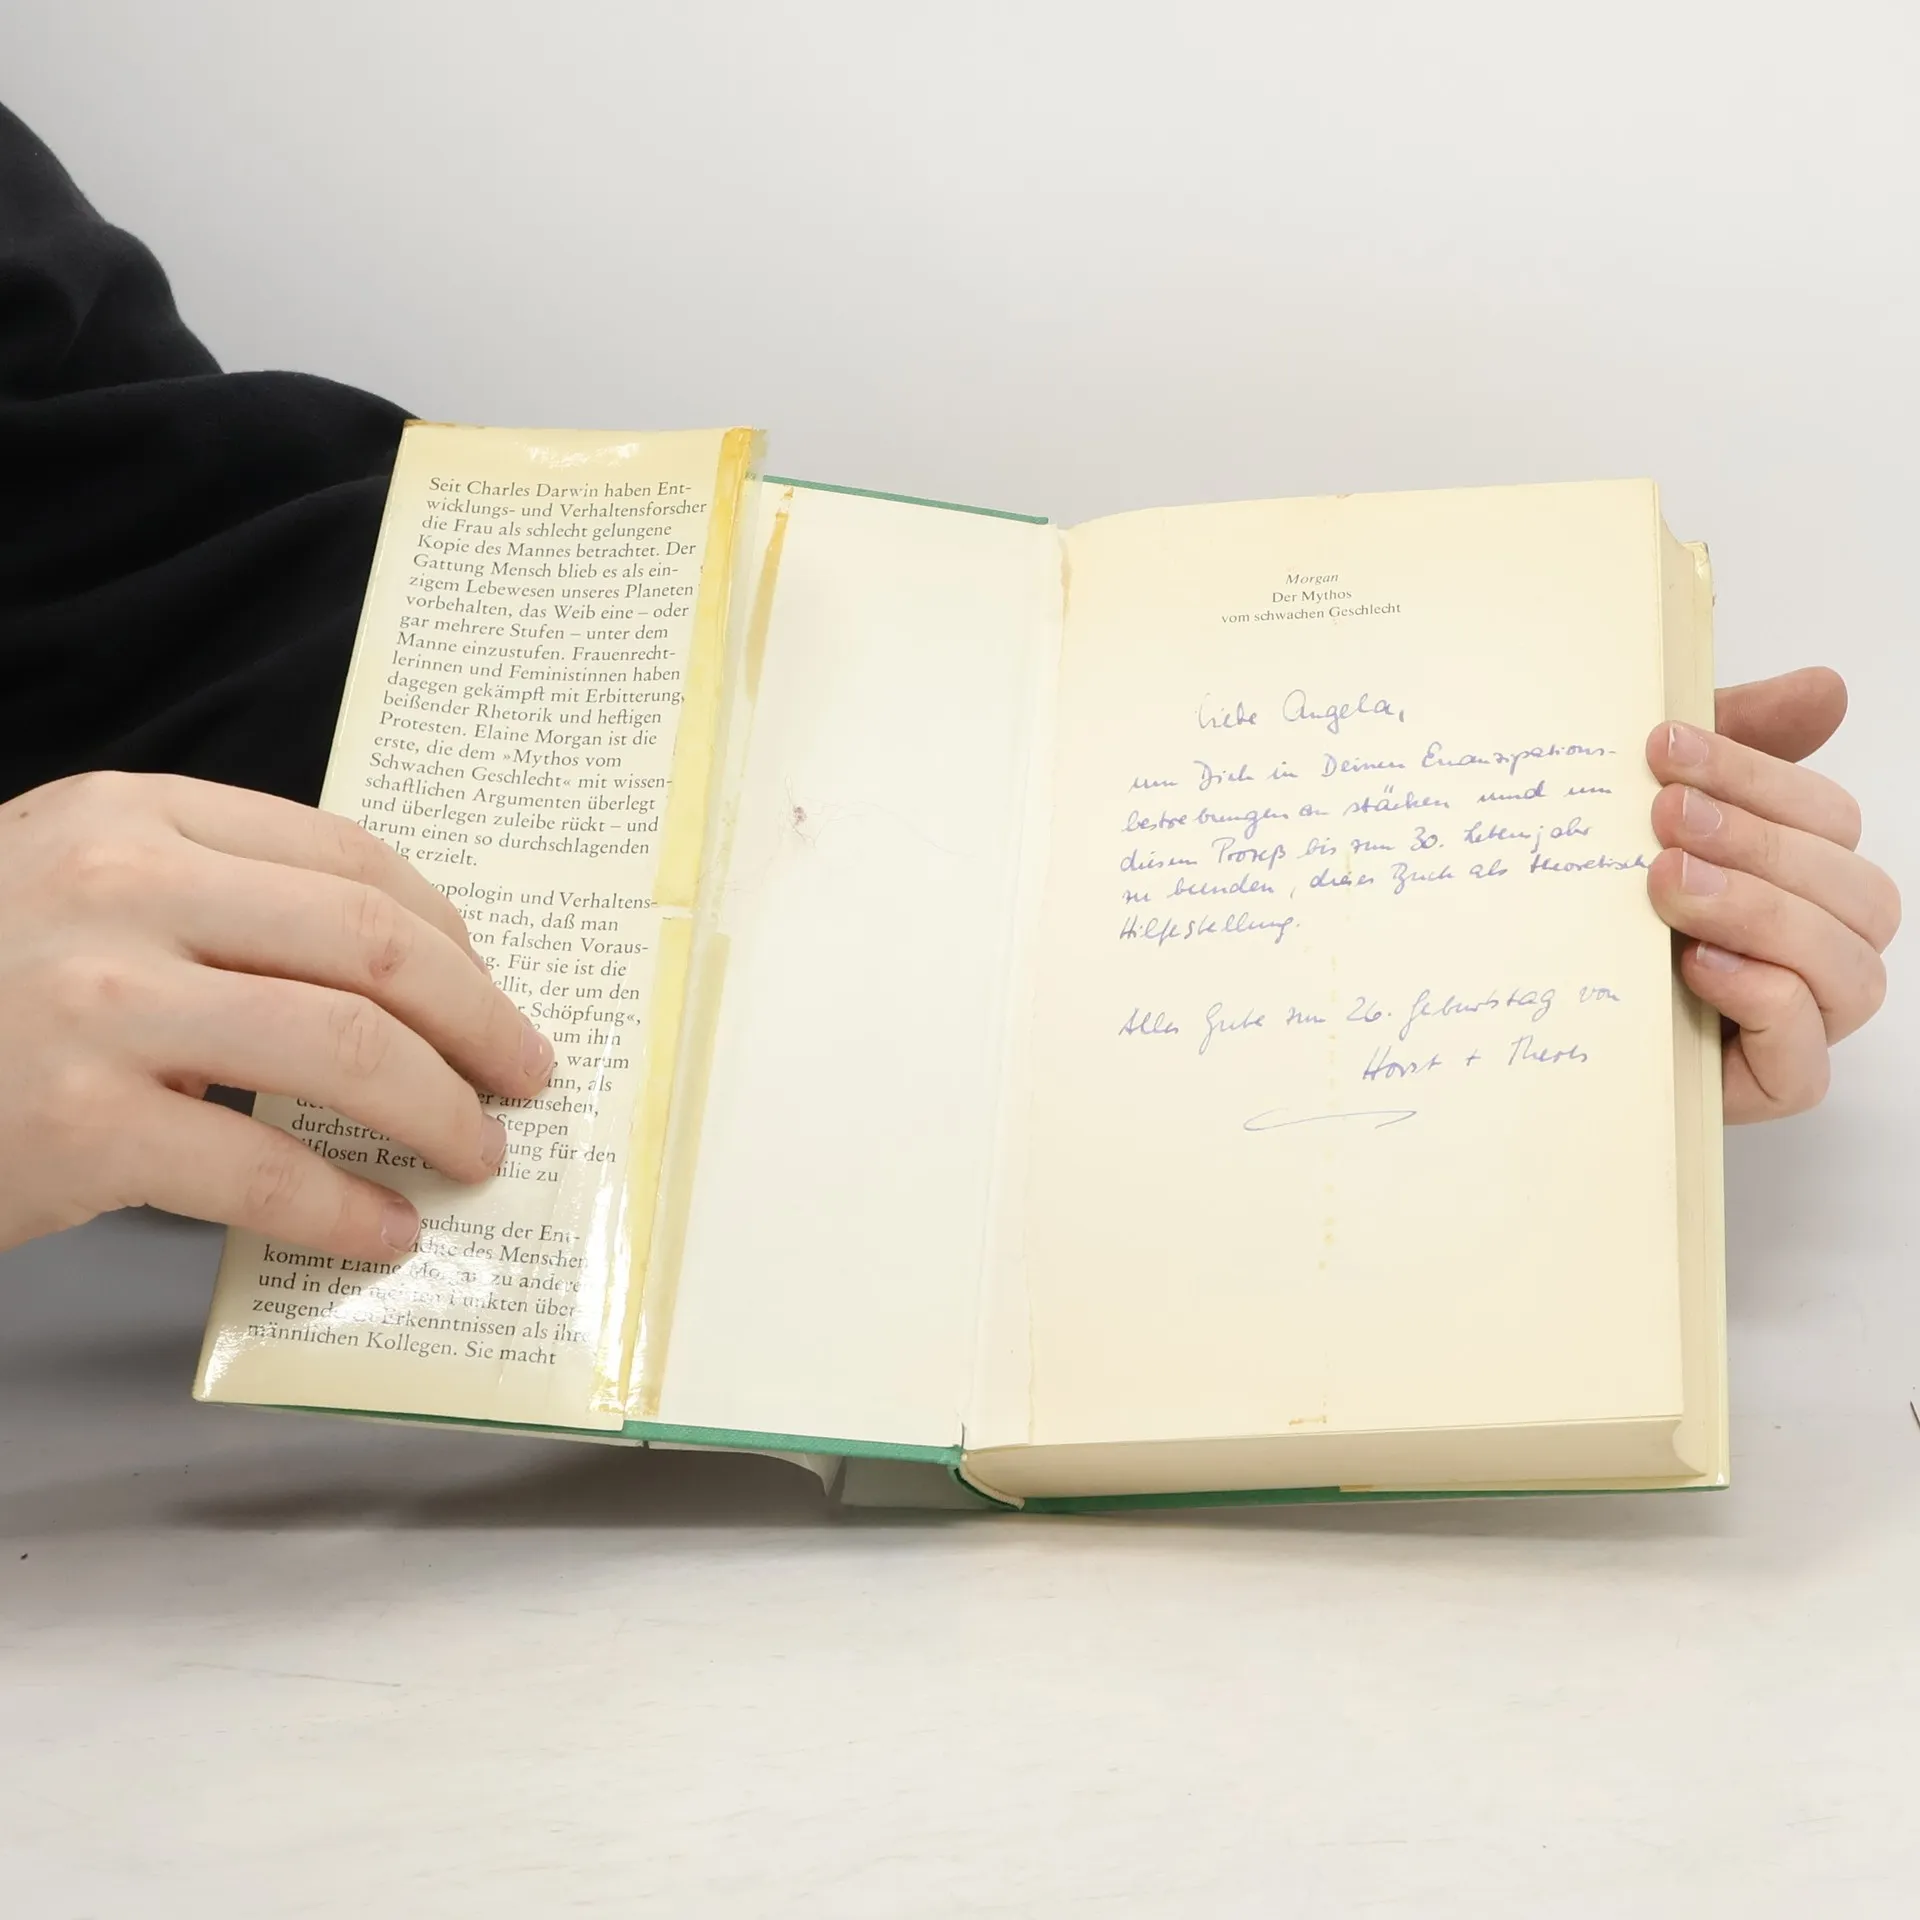 Seit Charles Darwin haben Ent-
wicklungs- und Verhaltensforscher
die Frau als schlecht gelungene
Kopie des Mannes betrachtet. Der
Gattung Mensch blieb es als ein-
zigem Lebewesen unseres Planeten
vorbehalten, das Weib eine – oder
gar mehrere Stufen – unter dem
Manne einzustufen. Frauenrecht-
lerinnen und Feministinnen haben
dagegen gekämpft mit Erbitterung,
beißender Rhetorik und heftigen
Protesten. Elaine Morgan ist die
erste, die dem »Mythos vom
Schwachen Geschlecht« mit wissen-
schaftlichen Argumenten überlegt
und überlegen zuleibe rückt – und
darum einen so durchschlagenden
erzielt.
und Verhaltens-
nach, daß man
falschen Voraus-
Für sie ist die
der um den
Schöpfung«,
um ihm
warum
als
anzusehen,
Steppen
für den
Rest
zu
der Ent-
des Menschen
kommt Elaine Morgan zu
und in den meisten Punkten über-
Erkenntnissen als
männlichen Kollegen. Sie macht
Morgan
Der Mythos
vom schwachen Geschlecht
Liebe Angela,
um Dich in Deinen Emanzipations-
bestrebungen zu stärken und um
diesen Prozeß bis zum 30. Lebensjahr
zu beenden, dieses Buch als theoretische
Hilfestellung.
Alles Gute zum 26. Geburtstag von
Horst +